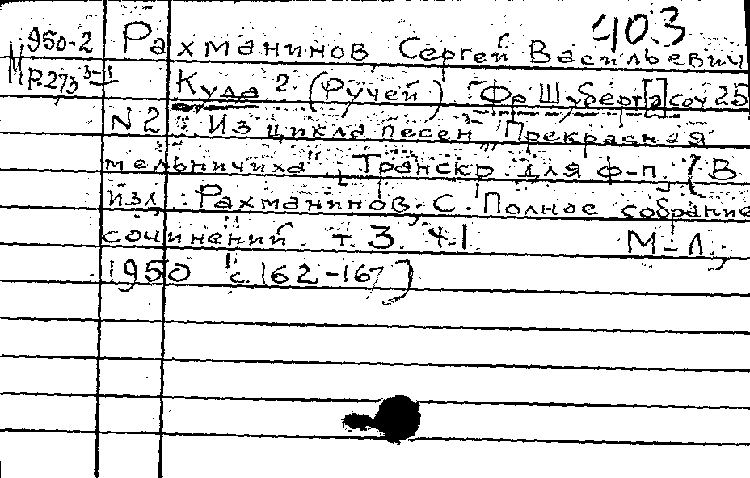 40.3
М 950-2 Рахманинов, Сергей Васильевич
Р.273 3-1 Куда? (Ручей). Фр. Шуберт[а] соч 25
N2. Из цикла песен "Прекрасная
мельничиха". Транскр. для ф-п. (В
изд.: Рахманинов, С. Полное собрание
сочинений. т. 3. ч.1 М-Л.,
1950 с. 162-167)